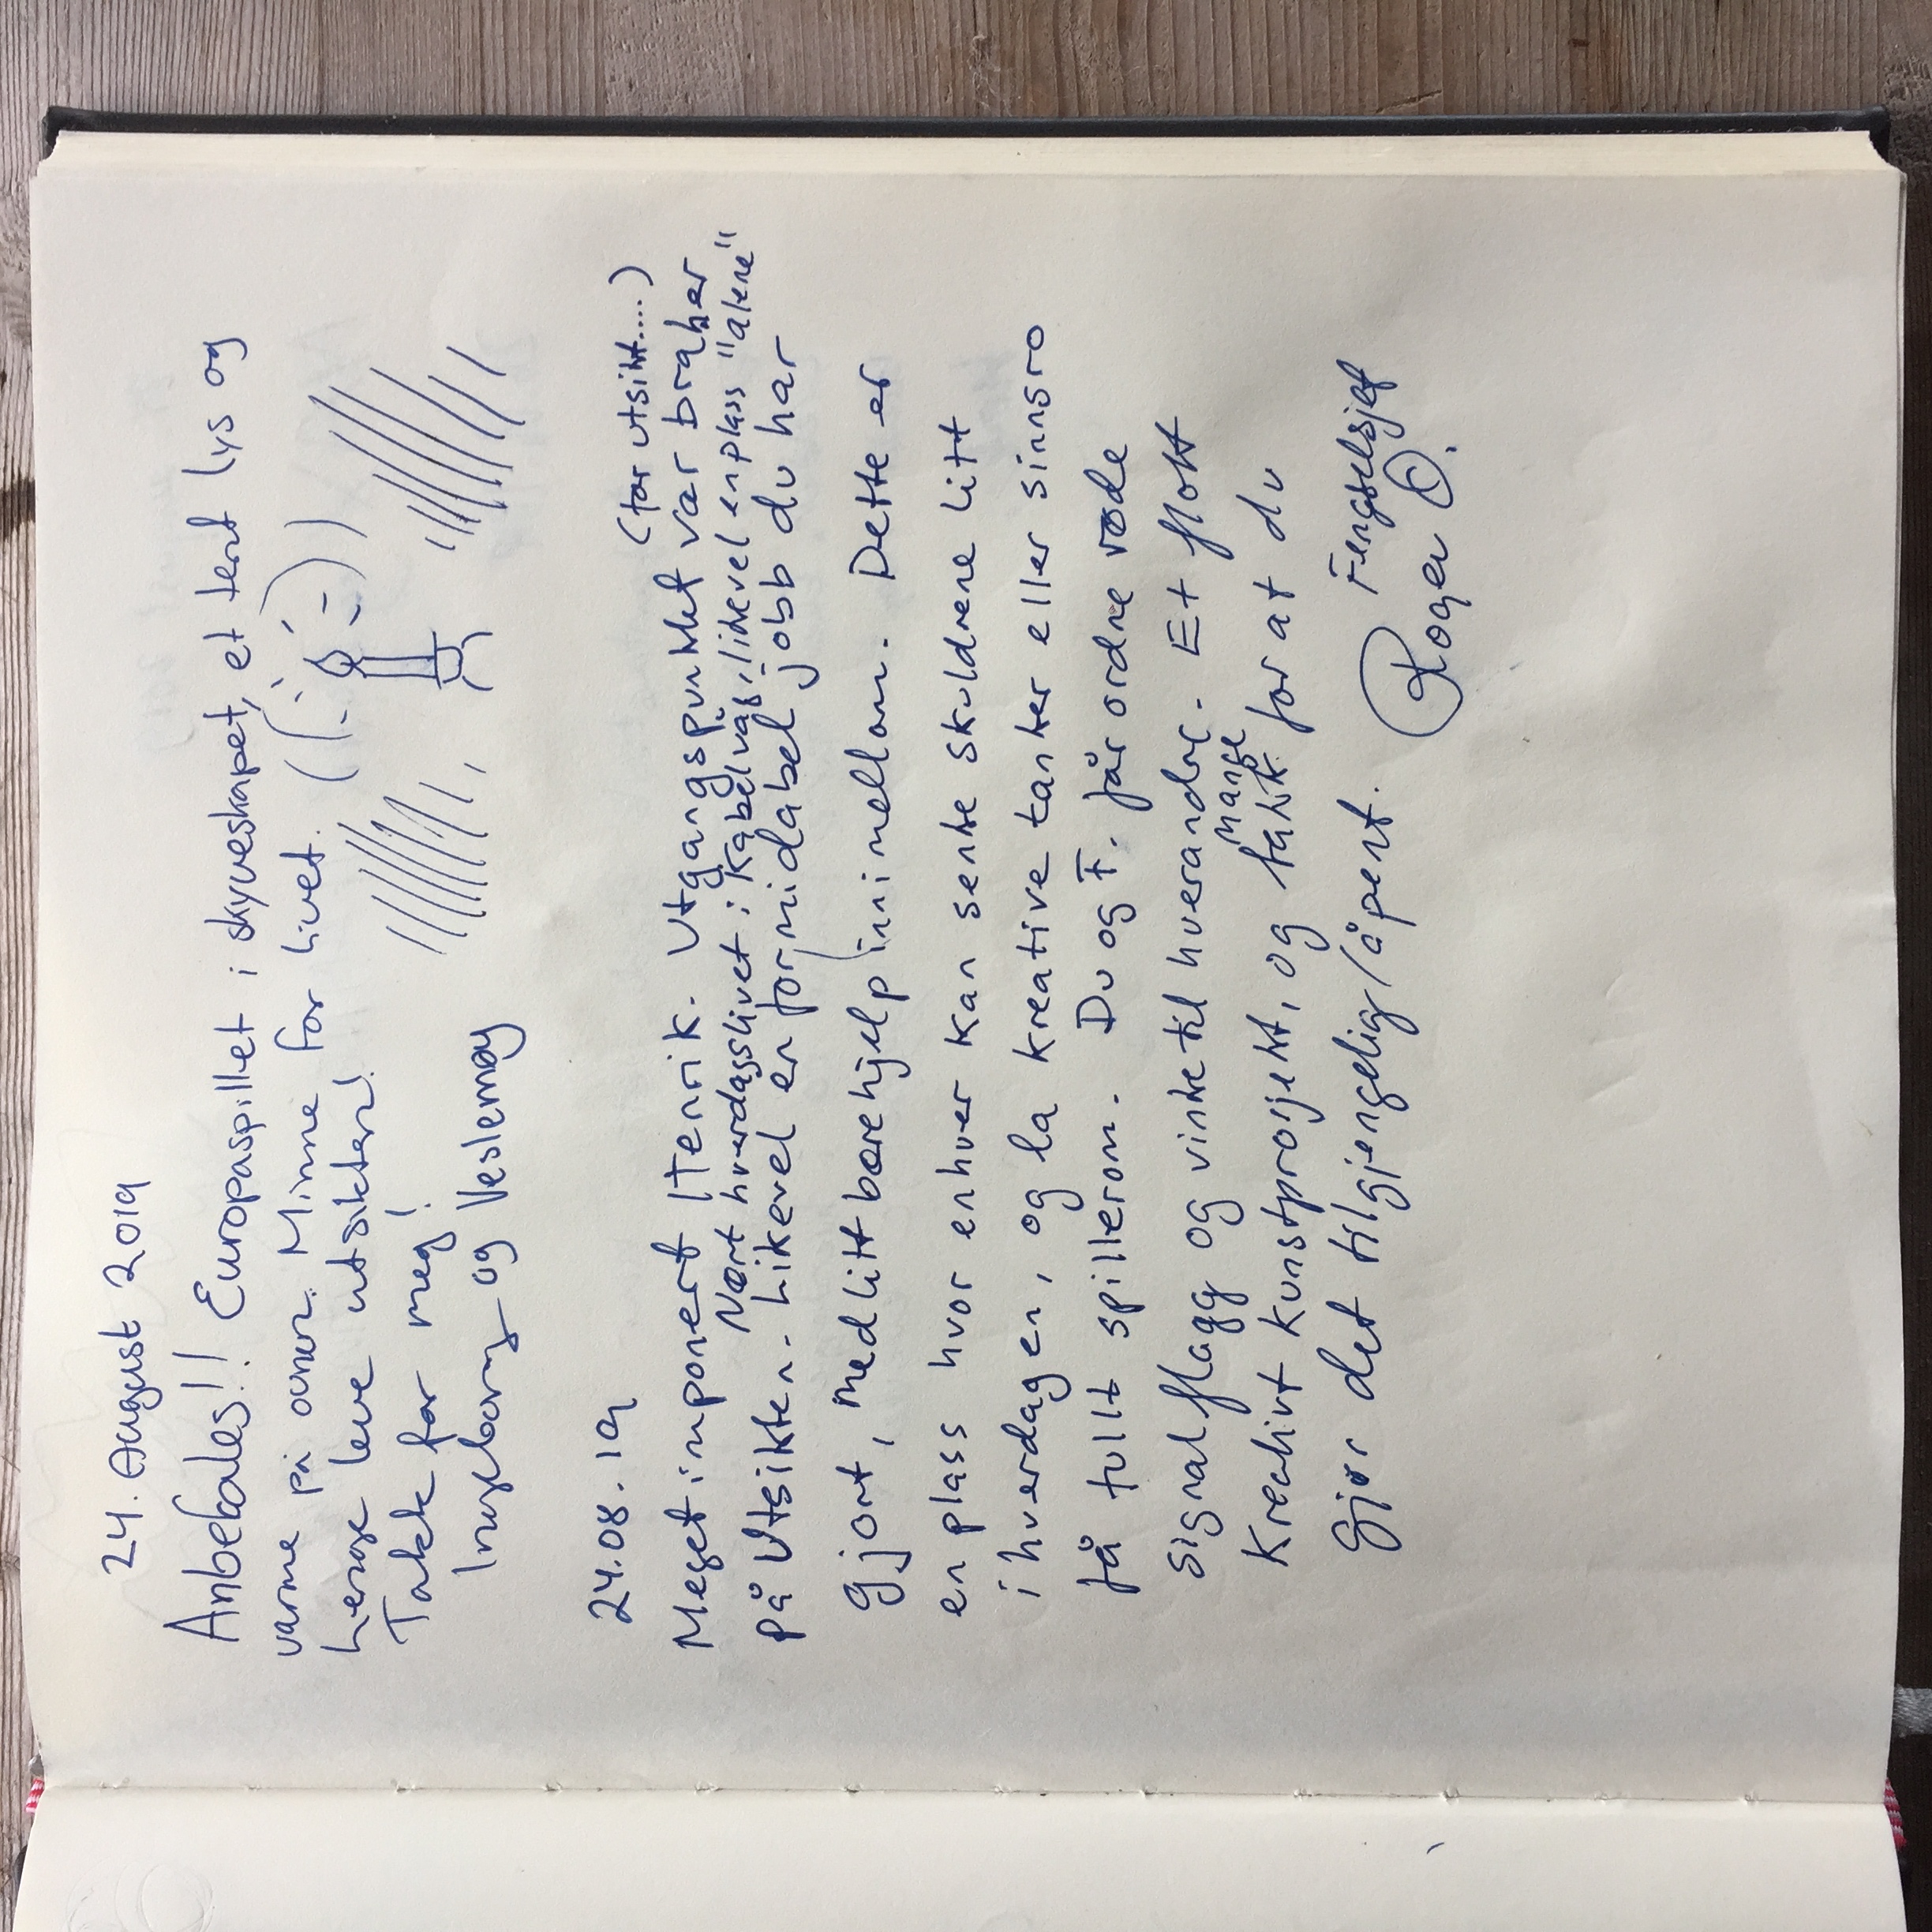 24. August 2019
Anbefales!! Europaspillet i skyveskapet, et tent lys og
varme på ovnen. Minne for livet.
lenge leve utsikten!
Takk for meg!
Ingeborg og Veslemøy
24.08.19
(før utsikt....)
Meget imponert Henrik. Utgangspunktet var bra her
Nært hverdagslivet i Kabelvåg, likevel en plass "alene"
på Utsikten. Likevel en formidabel jobb du har
gjort, med litt børehjelp innimellom. Dette er
en plass hvor enhver kan senke skuldrene litt
i hverdagen, og la kreative tanker eller sinnsro
få fullt spillerom. Du og F. får ordne røde
signalflagg og vinke til hverandre. Et flott
Kreativt kunstprosjekt, og mange takk for at du
gjør det tilgjengelig/åpent.
Fengselsjef
Roger